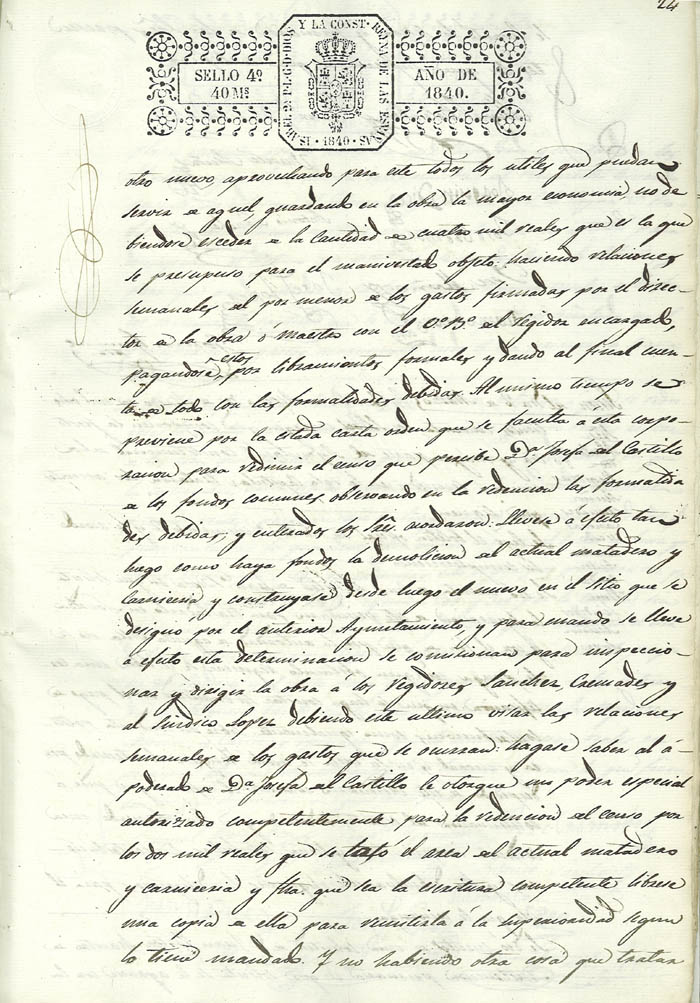 24
ISABEL 2ª P.L.G.D.DIOS Y LA CONST. REYNA DE LAS ESPAÑAS
SELLO 4º AÑO DE
40 Ms 1840.
·1840·
otro nuevo, aprovechando para este todos los utiles que puedan
servir de aquel, guardando en la obra la mayor economia, no de
biendose esceder de la Cantidad de cuatro mil reales que es la que
se presupuso para el manivestado objeto: haciendo relaciones
semanales del por menor de los gastos firmadas por el direc-
tor de la obra ó maestro con el Vº Bº del Regidor encargado,
pagandose estos por libramientos formales y dando al final cuen-
ta de todo con las formalidades debidas. Al mismo tiempo se
previene por la citada carta orden que se faculta á esta corpo-
racion para redimir el censo que percibe Dª Josefa del Castillo
de los fondos comunes observando en la redencion las formalida
des debidas; y enterados los Sres. acordaron: Llevese á efeto tan
luego como haya fondos la demolicion del actual matadero y
Carniceria y construyase desde luego el nuevo en el sitio que se
designó por el anterior Ayuntamiento, y para cuando se lleve
á efeto esta determinacion se comisionan para inspeccio-
nar y dirigir la obra á los Regidores Sanchez, Cremades y
al Sindico Lopez debiendo este ultimo visar las relaciones
semanales de los gastos que se ocurran: hagase saber al á-
poderado de Dª Josefa del Castillo le otorgue un poder especial
autorizado competentemente para la redencion del censo por
los dos mil reales que se tasó el area del actual matadero
y carniceria y fha. que sea la escritura competente librese
una copia de ella para remitirla á la superioridad segun
lo tiene mandado. Y no habiendo otra cosa que tratar